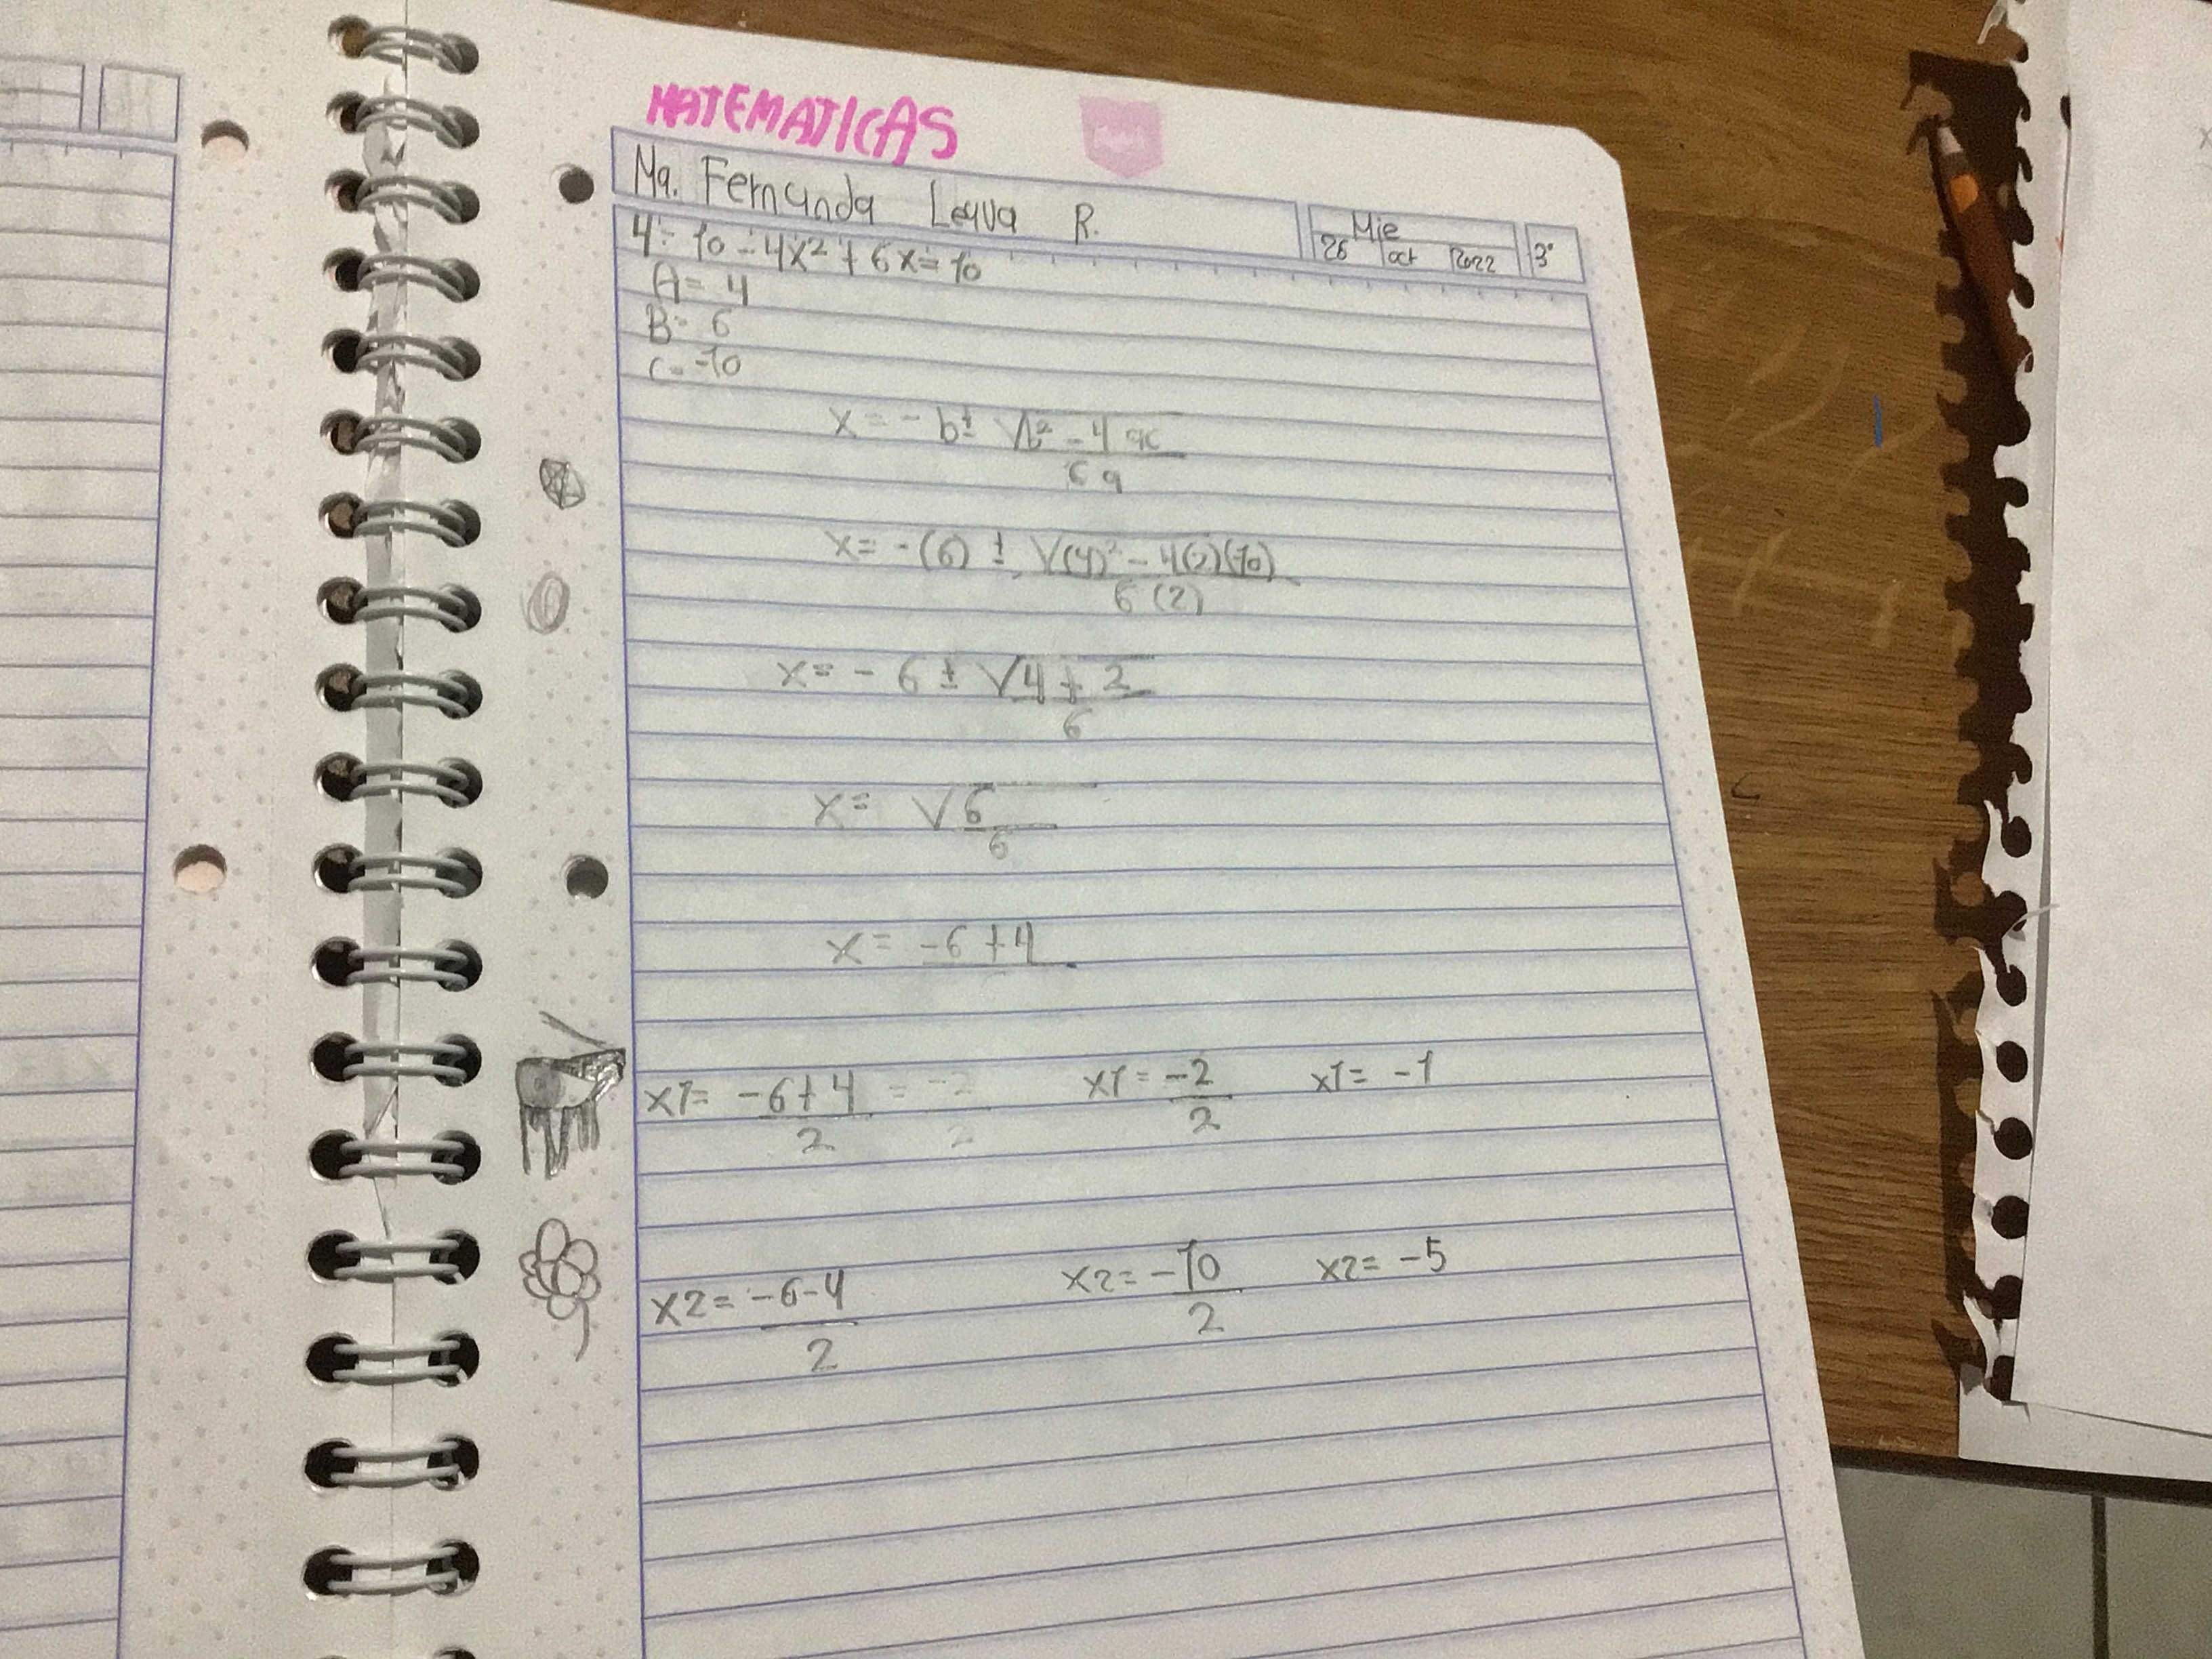 MATEMATICAS
Ma. Fernanda Leyva R.
Mie
26 oct 2022
3°
4÷ 10 - 4x2 + 6x = 10
A= 4
B= 6
C= -10
x = - b ± √b² - 4 ac
6 a
x = - (6) ± √(4)² - 4(2)(10)
6 (2)
x = - 6 ± √4 + 2
6
x = √6
6
x = -6 + 4
x1= -6+4 = -2 x1 = -2 x1= -1
2 2 2
x2= -6-4 x2= -10 x2= -5
2 2